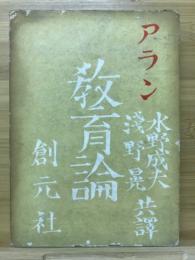 アラン
教育論
水野成夫
淺野晃
共譯
創元社